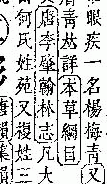 眼疾一名楊梅青又
青𠀤詳本草綱目
唐李肇翰林志凡大
何氏姓苑又複姓三